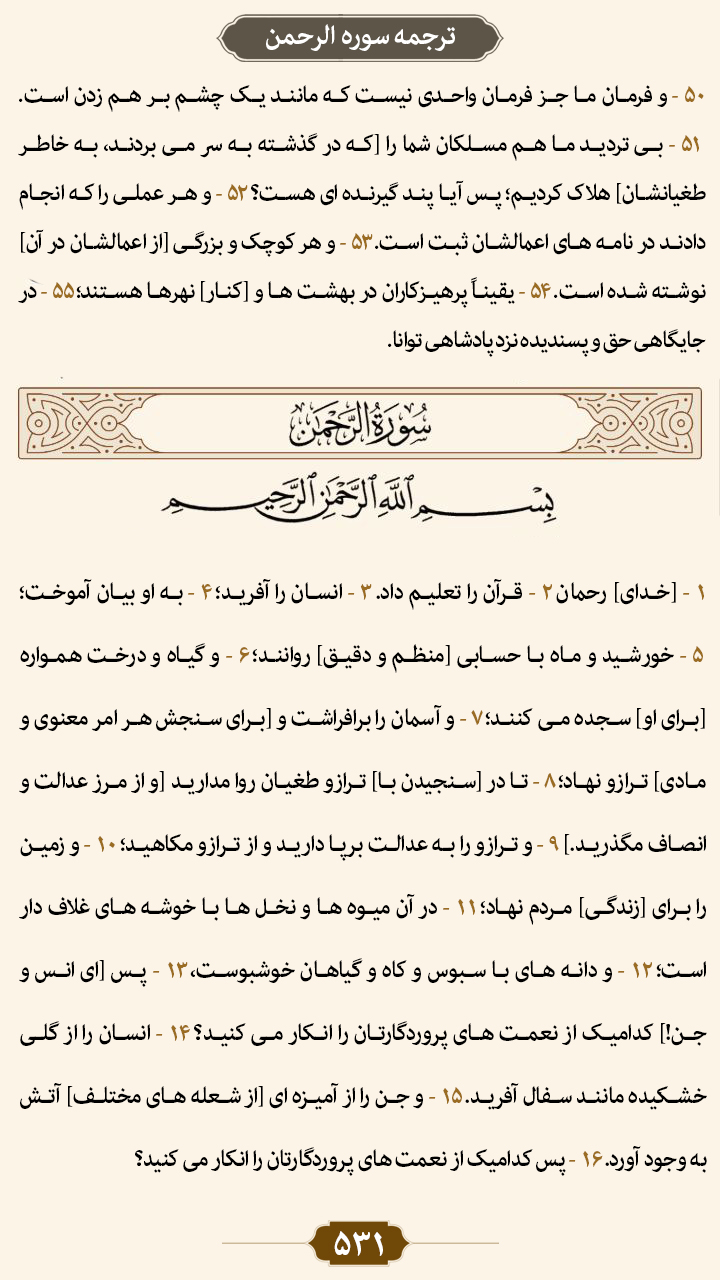 ترجمه سوره الرحمن
۵۰ - و فرمان ما جز فرمان واحدی نیست که مانند یک چشم بر هم زدن است.
۵۱ - بی تردید ما هم مسلکان شما را [که در گذشته به سر می بردند، به خاطر
طغیانشان] هلاک کردیم؛ پس آیا پند گیرنده ای هست؟ ۵۲ - و هر عملی را که انجام
دادند در نامه های اعمالشان ثبت است. ۵۳ - و هر کوچک و بزرگی [از اعمالشان در آن]
نوشته شده است. ۵۴ - یقیناً پرهیزکاران در بهشت ها و [کنار] نهرها هستند؛ ۵۵ - در
جایگاهی حق و پسندیده نزد پادشاهی توانا.
سُورَةُ الرَّحْمَٰن
بِسْمِ اللَّهِ الرَّحْمَٰنِ الرَّحِيمِ
۱ - [خدای] رحمان ۲ - قرآن را تعلیم داد. ۳ - انسان را آفرید؛ ۴ - به او بیان آموخت؛
۵ - خورشید و ماه با حسابی [منظم و دقیق] روانند؛ ۶ - و گیاه و درخت همواره
[برای او] سجده می کنند؛ ۷ - و آسمان را برافراشت و [برای سنجش هر امر معنوی و
مادی] ترازو نهاد؛ ۸ - تا در [سنجیدن با] ترازو طغیان روا مدارید [و از مرز عدالت و
انصاف مگذرید.] ۹ - و ترازو را به عدالت برپا دارید و از ترازو مکاهید؛ ۱۰ - و زمین
را برای [زندگی] مردم نهاد؛ ۱۱ - در آن میوه ها و نخل ها با خوشه های غلاف دار
است؛ ۱۲ - و دانه های با سبوس و کاه و گیاهان خوشبوست، ۱۳ - پس [ای انس و
جن!] کدامیک از نعمت های پروردگارتان را انکار می کنید؟ ۱۴ - انسان را از گلی
خشکیده مانند سفال آفرید. ۱۵ - و جن را از آمیزه ای [از شعله های مختلف] آتش
به وجود آورد. ۱۶ - پس کدامیک از نعمت های پروردگارتان را انکار می کنید؟
۵۳۱